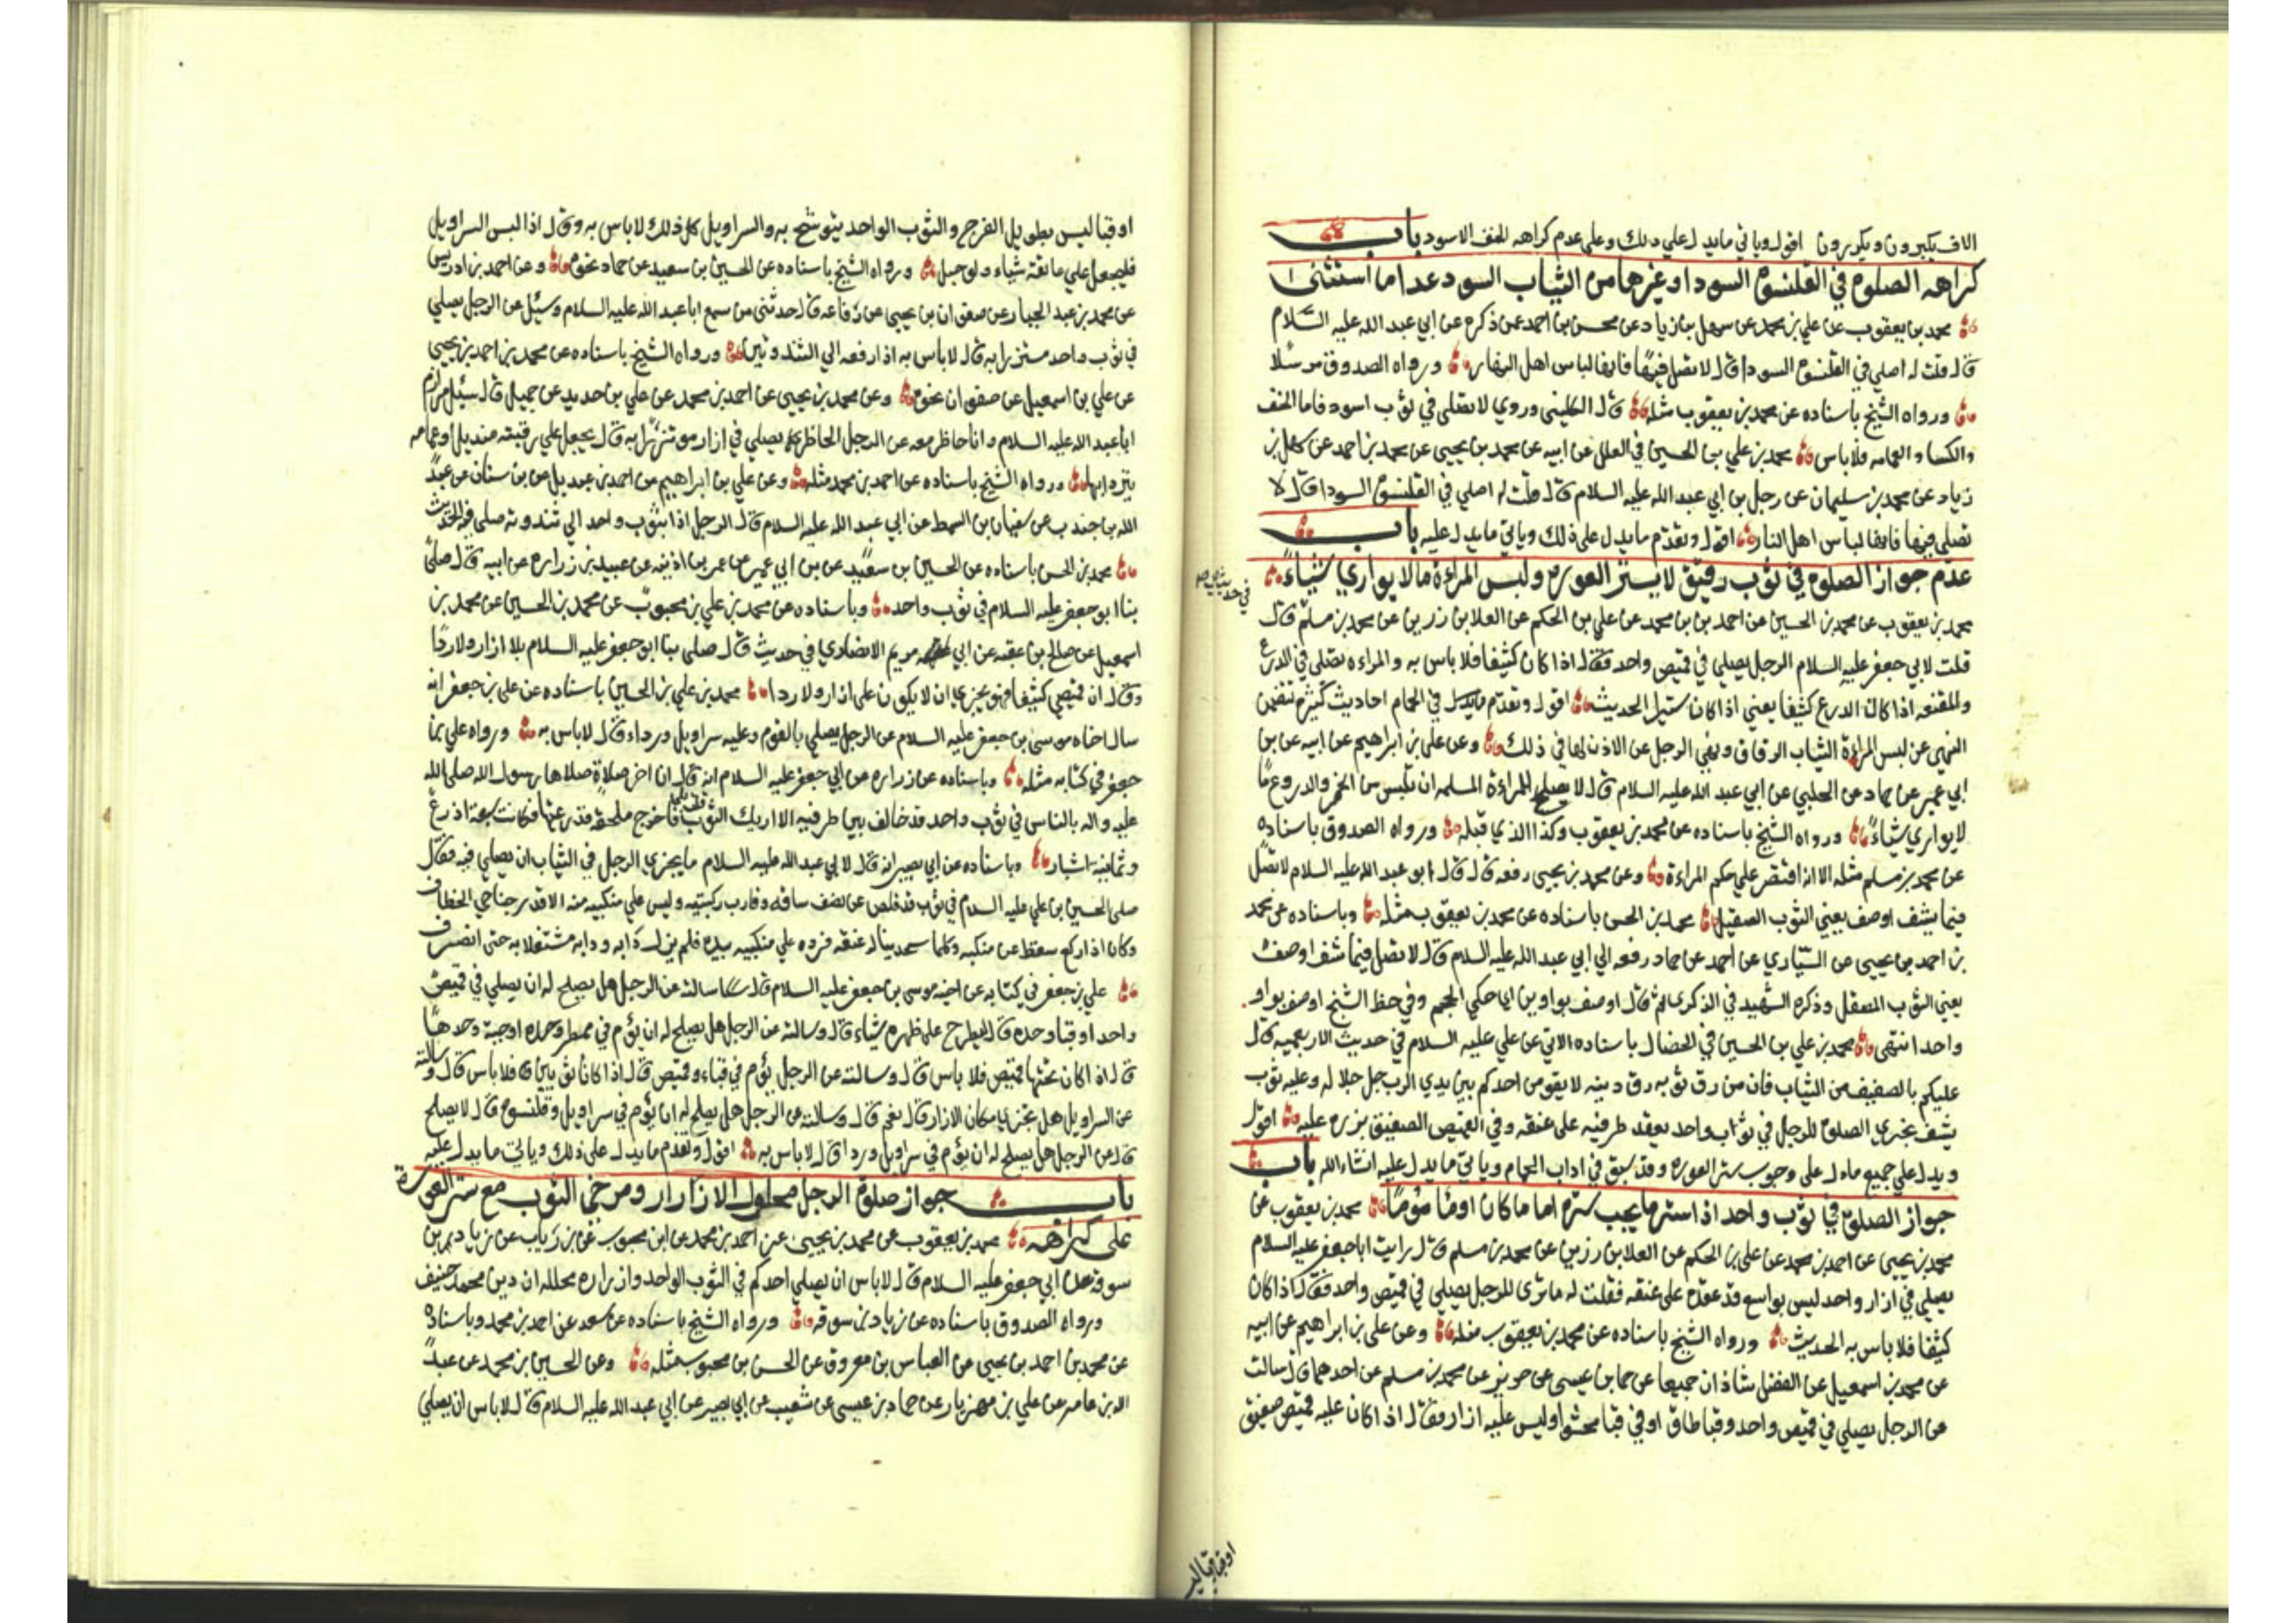 الاف يكبرون ويكبرون اقول وياتي ما يدل علي ذلك وعلي عدم كراهه الخف الاسود باب
كراهه الصلوة في القلنسوة السودا وغيرها من الثياب السود عدا ما استثني
محمد بن يعقوب عن علي بن محمد عن سهل بن زياد عن محسن بن احمد عمن ذكره عن ابي عبد الله عليه السلام
قال قلت له اصلي في القلنسوة السودا قال لا تصل فيها فانها لباس اهل النار ورواه الصدوق مرسلا
ورواه الشيخ باسناده عن محمد بن يعقوب مثله قال الكليني وروي لا تصلي في ثوب اسود فاما الخف
والكسا والعمامه فلا باس محمد بن علي بن الحسين في العلل عن ابيه عن محمد بن يحيي عن محمد بن احمد عن سهل بن
زياد عن محمد بن سليمان عن رجل بن ابي عبد الله عليه السلام قال قلت له اصلي في القلنسوة السودا قال لا
تصلي فيها فانها لباس اهل النار اقول وتقدم ما يدل علي ذلك وياتي ما يدل عليه باب
عدم جواز الصلوة في ثوب رقيق لا يستر العورة ولبس المراءة ما لا يواري شيئاً
محمد بن يعقوب عن محمد بن الحسين عن احمد بن بن محمد عن علي بن الحكم عن العلا بن رزين عن محمد بن مسلم قال
قلت لابي جعفر عليه السلام الرجل يصلي في قميص واحد فقال اذا كان كثيفا فلا باس به والمراءه تصلي في الدرع
والمقنعه اذا كان الدرع كثيفا يعني اذا كان ستيرا الحديث اقول وتقدم ما يدل في الحمام احاديث كثيرة تتضمن
النهي عن لبس المراءة الثياب الرقاق ونهي الرجل عن الاذن لها في ذلك وعن علي بن ابراهيم عن ابيه عن بن
ابي عمير عن حماد عن الحلبي عن ابي عبد الله عليه السلام قال لا يصلح للمراءة المسلمه ان تلبس من الخمر والدروع ما
لا يواري شياءً ورواه الشيخ باسناده عن محمد بن يعقوب وكذا الذي قبله ورواه الصدوق باسناده
عن محمد بن مسلم مثله الا انه اقتصر علي حكم المراءة وعن محمد بن يحيي رفعه قال قال ابو عبد الله عليه السلام لا تصل
فيما يشف اوصف يعني الثوب الصقيل محمد بن الحسن باسناده عن محمد بن يعقوب مثله وباسناده عن محمد
بن احمد بن يحيي عن السياري عن احمد عن حماد رفعه الي ابي عبد الله عليه السلام قال لا تصل فيما شف اوصف
يعني الثوب المصقل وذكره الشهيد في الذكري ثم قال اوصف بواوين اي حكي الحجم وفي خط الشيخ اوصف بواو
واحد انتهي محمد بن علي بن الحسين في الخصال باسناده الاتي عن علي عليه السلام في حديث الاربعميه قال
عليكم بالصفيف من الثياب فان من رق ثوبه رق دينه لا يقومن احدكم بين يدي الرب جل جلاله وعليه ثوب
يشف تجزي الصلوة للرجل في ثواب واحد يعقد طرفيه علي عنقه وفي القميص الصفيق يزره عليه اقول
ويدل علي جميع ما دل علي وجوب ستر العورة وقد سبق في اداب الحمام وياتي ما يدل عليه انشاءالله باب
جواز الصلوة في ثوب واحد اذا ستر ما يجب ستره اماما كان اوماموما محمد بن يعقوب عن
محمد بن يحيي عن احمد بن محمد عن علي بن الحكم عن العلا بن رزين عن محمد بن مسلم قال رايت اباجعفر عليه السلام
يصلي في ازار واحد ليس بواسع قد عقده علي عنقه فقلت له ما تري للرجل يصلي في قميص واحد فقال اذا كان
كثيفا فلا باس به الحديث ورواه الشيخ باسناده عن محمد بن يعقوب مثله وعن علي بن ابراهيم عن ابيه
عن محمد بن اسمعيل عن الفضل شاذان جميعا عن حما بن عيسي عن حريز عن محمد بن مسلم عن احدهما قال سالت
عن الرجل يصلي في قميص واحد وقبا طاق اوفي قبا محشو اوليس عليه ازار فقال اذا كان عليه قميص صفيق
اوقبا ليس بطويل الفرج والثوب الواحد يتوشح به والسراويل كل ذلك لا باس به وقال اذا لبس السراويل
فليجعل علي عاتقه شياء ولوحبل ورواه الشيخ باسناده عن الحسين بن سعيد عن حماد نحوه وعن احمد بن ادريس
عن محمد بن عبد الجبار عن صفوان بن يحيي عن رفاعه قال حدثني من سمع اباعبد الله عليه السلام وسئل عن الرجل يصلي
في ثوب واحد متزرا به قال لا باس به اذا رفعه الي الثندوتين ورواه الشيخ باسناده عن محمد بن احمد بن يحيي
عن علي بن اسمعيل عن صفوان نحوه وعن محمد بن يحيي عن احمد بن محمد عن علي بن حديد عن جميل قال سئل مرازم
اباعبد الله عليه السلام وانا حاظر معه عن الرجل الحاظر يصلي في ازار موتزرا به قال يجعل علي رقبته منديلا اوعمامه
يتردابها ورواه الشيخ باسناده عن احمد بن محمد مثله وعن علي بن ابراهيم عن احمد بن عبديل عن بن سنان عن عبد
الله بن جندب عن سفيان بن السمط عن ابي عبد الله عليه السلام قال الرجل اذا بثوب واحد الي ثندوته صلي فيه الحديث
محمد بن الحسن باسناده عن الحسين بن سعيد عن بن ابي عمير عن عمر بن اذينه عن عبيد بن زراره عن ابيه قال صلي
بنا ابو جعفر عليه السلام في ثوب واحد وباسناده عن محمد بن علي بن محبوب عن محمد بن الحسين عن محمد بن
اسمعيل عن صالح بن عقبه عن ابي مريم الانصاري في حديث قال صلي بنا ابو جعفر عليه السلام بلا ازار ولا ردا
وقال ان قميصي كثيفا فهو يجزي ان لا يكون علي ازار ولا ردا محمد بن علي بن الحسين باسناده عن علي بن جعفر انه
سال اخاه موسي بن جعفر عليه السلام عن الرجل يصلي بالقوم وعليه سراويل ورداء قال لا باس به ورواه علي بن
جعفر في كتابه مثله وباسناده عن زراره عن ابي جعفر عليه السلام انه قال ان اخر صلاة صلاها رسول الله صلي الله
عليه واله بالناس في ثوب واحد قد خالف بين طرفيه الا اريك الثوب قلت بلي فاخرج ملحفة فذرعتها فكانت سبعة اذرع
وثمانية اشبار وباسناده عن ابي بصير انه قال لابي عبد الله عليه السلام ما يجزي الرجل في الثياب ان يصلي فيه فقال
صلي الحسين بن علي عليه السلام في ثوب قد قلص عن نصف ساقه وقارب ركبتيه وليس علي منكبيه منه الا قدر جناحي الخطاف
وكان اذا ركع سقط عن منكبيه وكلما سجد يناله عنقه فرده علي منكبيه بيده فلم يزل ذابه ودابه مشتغلا به حتي انصرف
علي بن جعفر في كتابه عن اخيه موسي بن جعفر عليه السلام قال سالته عن الرجل هل يصلح له ان يصلي في قميص
واحد اوقبا وحده قال ليطرح علي ظهره شياء قال وسالته عن الرجل هل يصلح له ان يؤم في ممطر وحده اوجبة وحدها
قال اذا كان تحتها قميص فلا باس قال وسالته عن الرجل يؤم في قباء وقميص قال اذا كانا ثوبين فلا باس قال وسالته
عن السراويل هل تجزي مكان الازار قال نعم قال وسالته عن الرجل هل يصلح له ان يؤم في سراويل وقلنسوة قال لا يصلح
قال عن الرجل هل يصلح له ان يؤم في سراويل وردا قال لا باس به اقول وتقدم ما يدل علي ذلك وياتي ما يدل عليه
باب جواز صلوة الرجل محلول الازارار ومرخي الثوب مع ستر العورة
علي كراهه محمد بن يعقوب عن محمد بن يحيي عن احمد بن محمد عن ابن محبوب عن بن رياب عن زياد بن
سوقه عن ابي جعفر عليه السلام قال لا باس ان يصلي احدكم في الثوب الواحد وازراره محلله ان دين محمد حنيف
ورواه الصدوق باسناده عن زياد بن سوقه ورواه الشيخ باسناده عن سعد عن احمد بن محمد وباسناده
عن محمد بن احمد بن يحيي عن العباس بن معروف عن الحسن بن محبوب مثله وعن الحسين بن محمد عن عبد
الله بن عامر عن علي بن مهزيار عن حماد بن عيسي عن شعيب عن ابي بصير عن ابي عبد الله عليه السلام قال لا باس ان يصلي